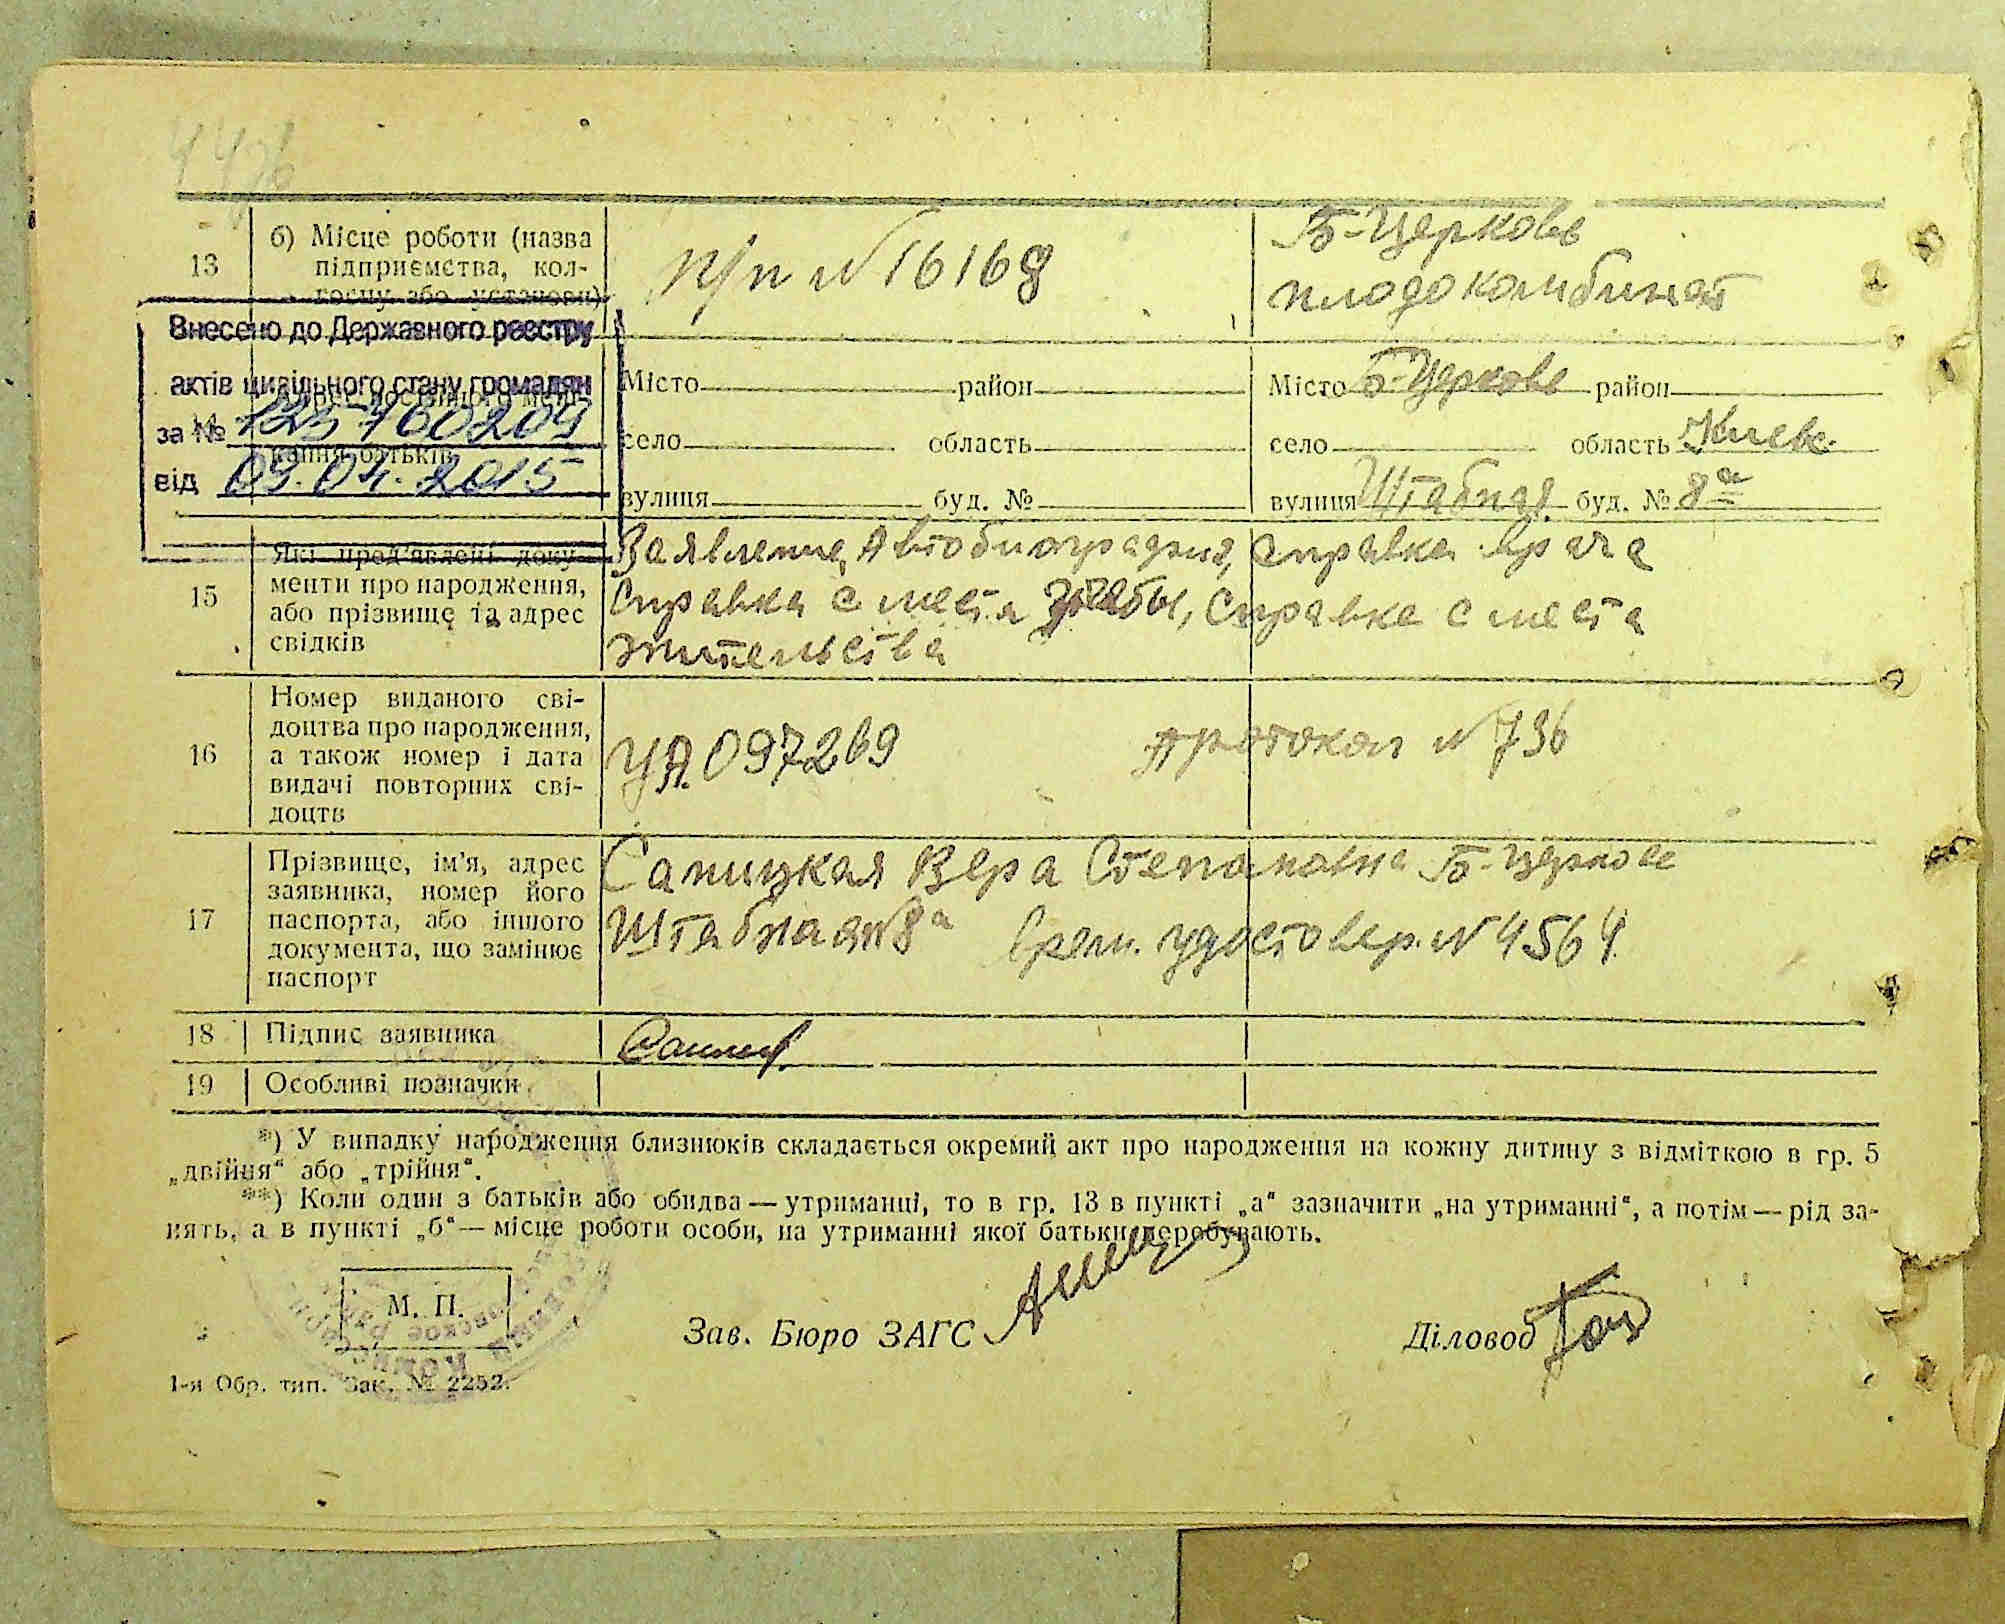 13
б) Місце роботи (назва
підприємства, кол-
госпу або установи)
п/п № 16168
Б-Церковь
плодокомбинат
Внесено до Державного реєстру
актів цивільного стану громадян
за №
від 09.04.2015
Місто район
село область
вулиця буд. №
Місто Б-Церковь район
село область Киевс.
вулиця Штабная буд. № 8а
15
Які пред'явлені доку-
менти про народження,
або прізвище та адрес
свідків
Заявление, Автобиография, справка врача
Справка с места работы, Справка с места
жительства
16
Номер виданого сві-
доцтва про народження,
а також номер і дата
видачі повторних сві-
доцтв
УА 097269 протокол № 736
17
Прізвище, ім'я, адрес
заявника, номер його
паспорта, або іншого
документа, що замінює
паспорт
Сапицкая Вера Степановна Б-Церковь
Штабная № 8а врем. удостовер. № 4564
18 Підпис заявника
19 Особливі позначки
*) У випадку народження близнюків складається окремий акт про народження на кожну дитину з відміткою в гр. 5
„двійня“ або „трійня“.
**) Коли один з батьків або обидва — утриманці, то в гр. 13 в пункті „а“ зазначити „на утриманні“, а потім — рід за-
нять, а в пункті „б“ — місце роботи особи, на утриманні якої батьки перебувають.
М. П.
Зав. Бюро ЗАГС
Діловод
1-я Обр. тип. Зак. № 2252.